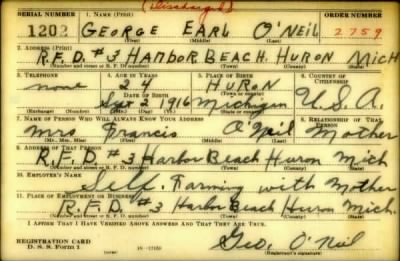 (Discharged)
SERIAL NUMBER 1. NAME (Print) ORDER NUMBER
1202 GEORGE EARL O'NEIL 2759
2. ADDRESS (Print)
R.F.D. #3 HARBOR BEACH, HURON MICH
(Number and street or R. F. D. number) (Town) (County) (State)
3. TELEPHONE 4. AGE IN YEARS 5. PLACE OF BIRTH 6. COUNTRY OF CITIZENSHIP
none 24 HURON
DATE OF BIRTH (Town or county)
Sept 2 1916 Michigan U.S.A.
(Exchange) (Number) (Mo.) (Day) (Yr.) (State or country)
7. NAME OF PERSON WHO WILL ALWAYS KNOW YOUR ADDRESS 8. RELATIONSHIP OF THAT PERSON
Mrs Francis O'Neil Mother
(Mr., Mrs., Miss) (First) (Middle) (Last)
9. ADDRESS OF THAT PERSON
R.F.D. #3 Harbor Beach Huron Mich
(Number and street or R. F. D. number) (Town) (County) (State)
10. EMPLOYER'S NAME
Self. Farming with Mother
11. PLACE OF EMPLOYMENT OR BUSINESS
R.F.D. #3 Harbor Beach Huron Mich.
(Number and street or R. F. D. number) (Town) (County) (State)
I AFFIRM THAT I HAVE VERIFIED ABOVE ANSWERS AND THAT THEY ARE TRUE.
REGISTRATION CARD
D. S. S. Form 1 Geo. O'Neil
(Registrant's signature)